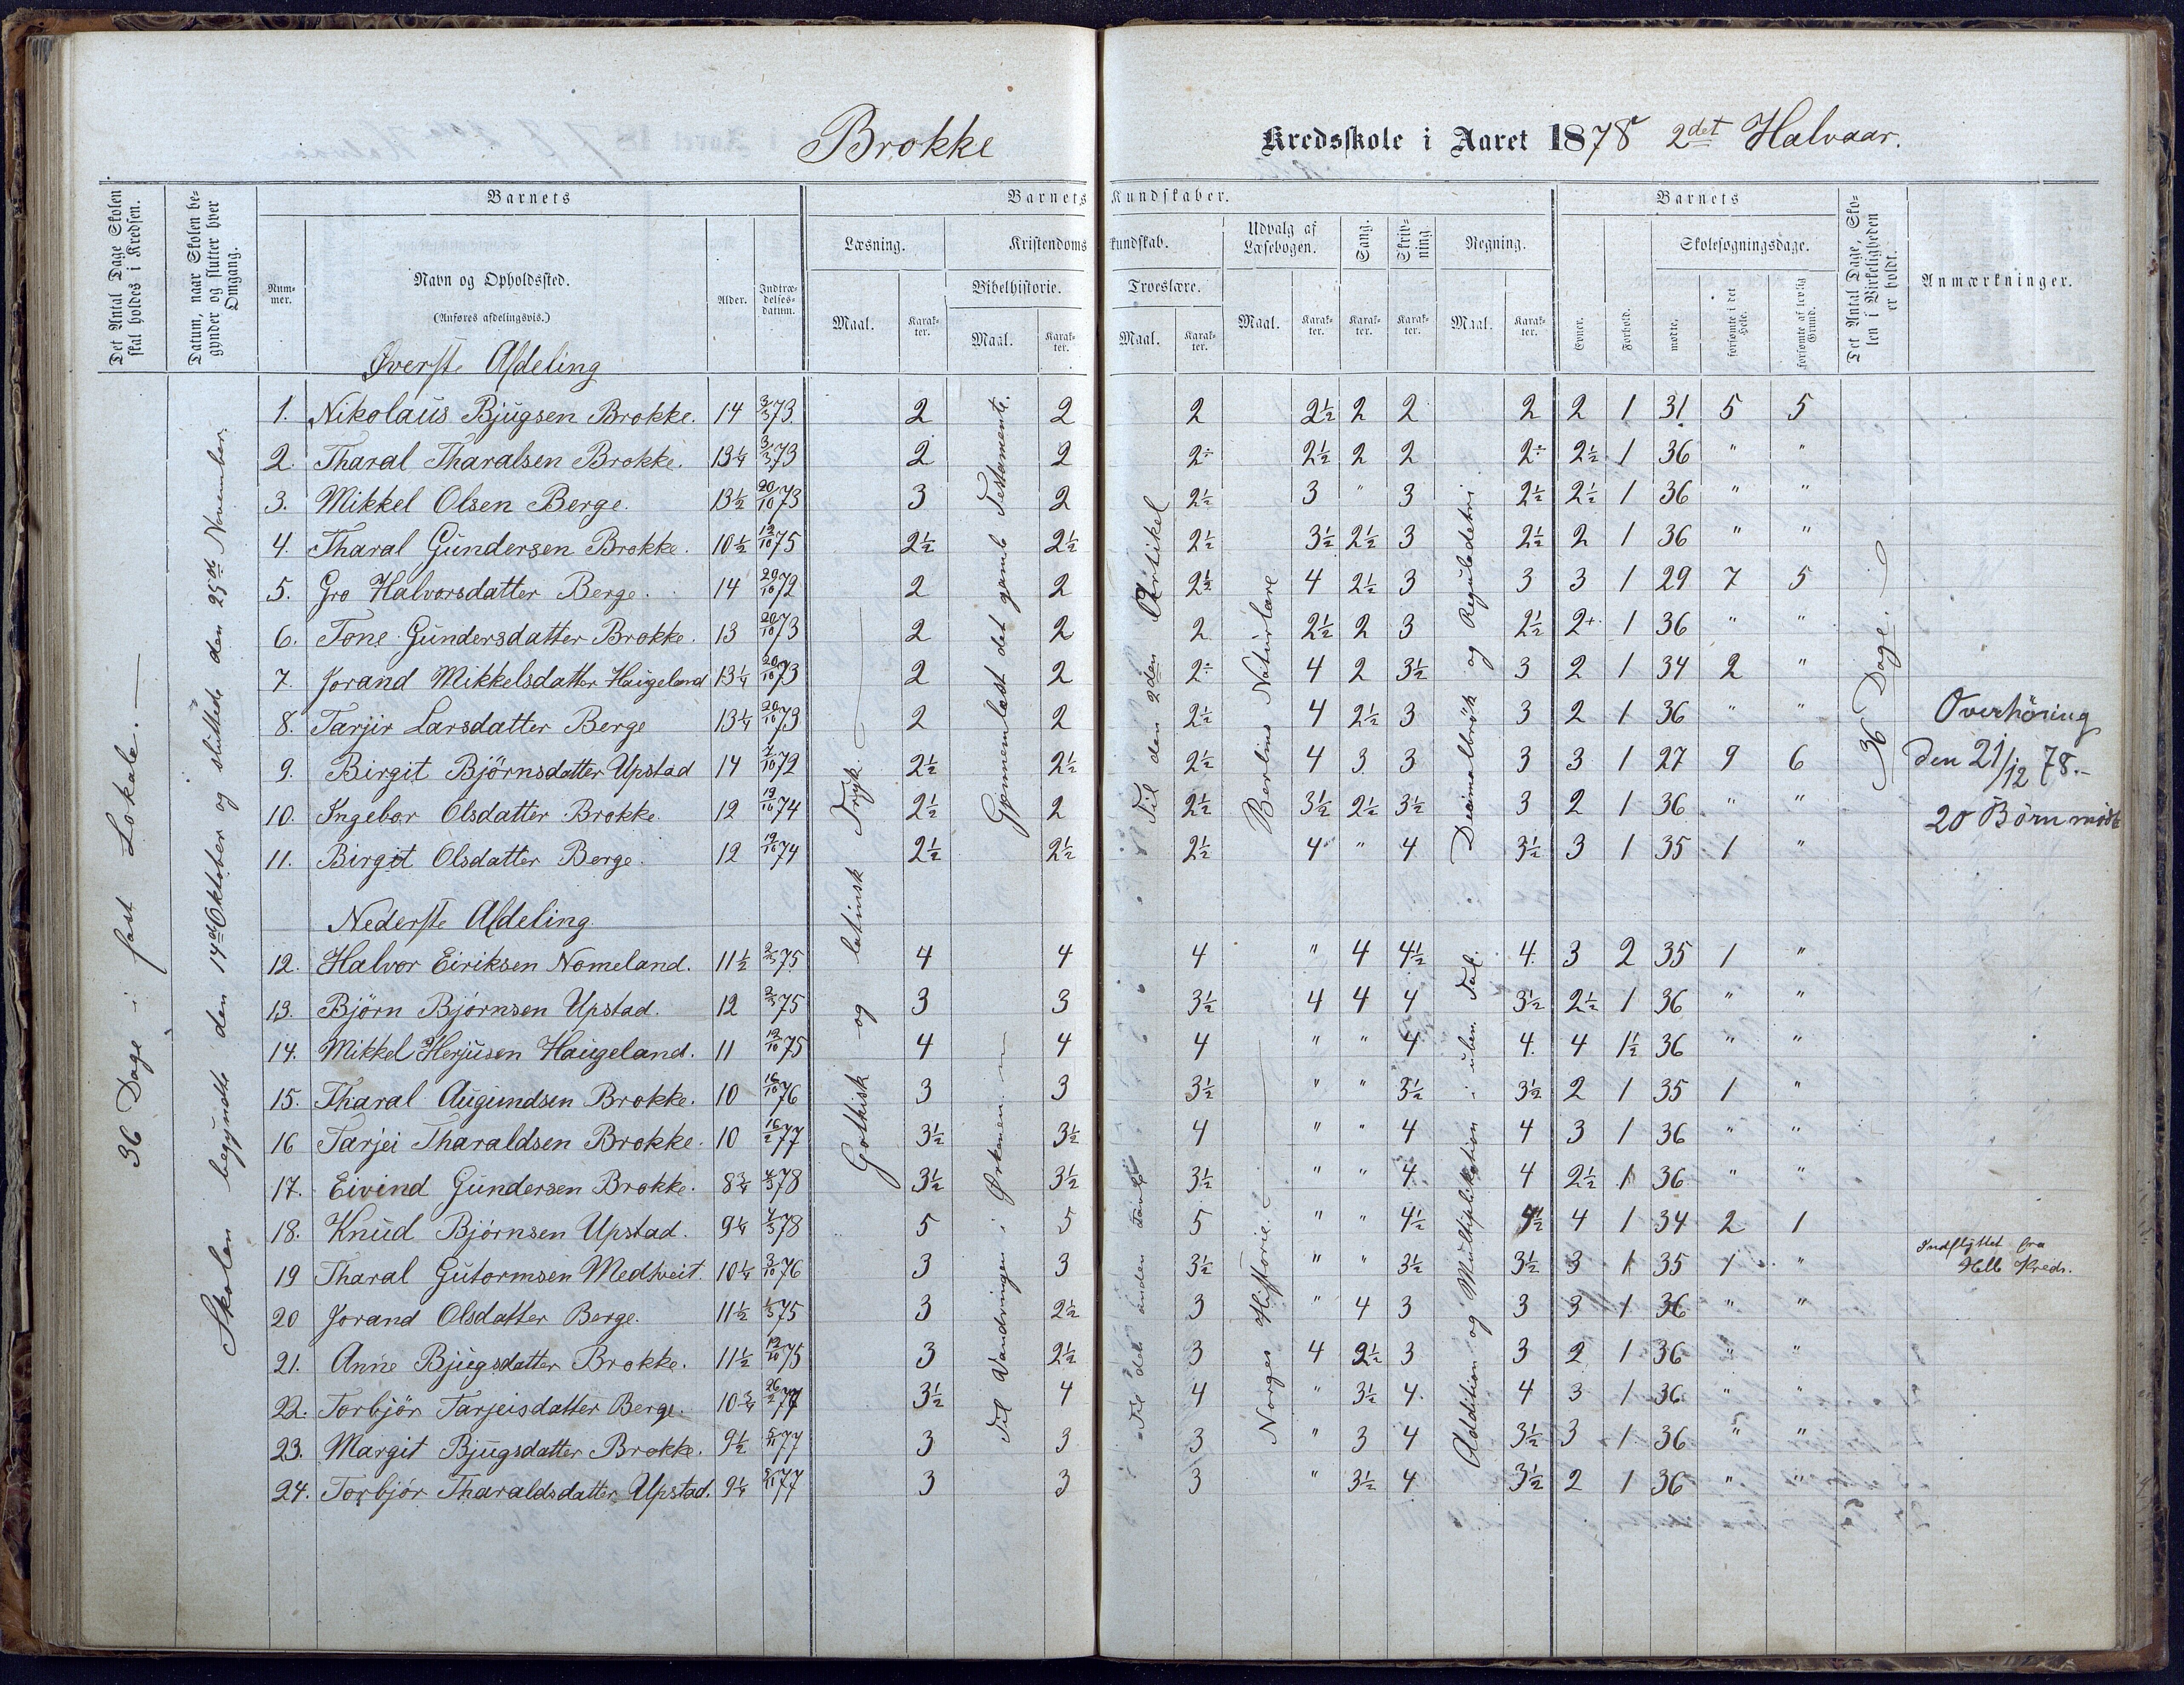 Brokke Kredsskole i Aaret 1878 2det Halvaar.
Det Antal Dage Skolen skal holdes i Kredsen.
Datum, naar Skolen begynder og slutter hver Omgang.
Barnets
Nummer.
Navn og Opholdssted.
(Anføres afdelingsvis.)
Alder.
Indtrædelsesdatum.
Barnets Kundskaber.
Læsning.
Maal.
Karakter.
Kristendomskundskab.
Bibelhistorie.
Maal.
Karakter.
Troeslære.
Maal.
Karakter.
Udvalg af Læsebogen.
Maal.
Karakter.
Sang.
Karakter.
Skrivning.
Karakter.
Regning.
Maal.
Karakter.
Barnets
Evner.
Forhold.
Skolesøgningsdage.
mødte,
forsømte i det Hele.
forsømte af lovlig Grund.
Det Antal Dage, Skolen i Virkeligheden er holdt.
Anmærkninger.
36 Dage i fast Lokale.
Skolen begyndte den 14de Oktober og sluttede den 25de November.
Øverste Afdeling
1. Nikolaus Bjugsen Brokke. 14 3/3 73. 2 2 2 2½ 2 2 2 2 1 31 5 5
2. Tharal Tharalsen Brokke. 13¼ 3/3 73 2 2 2÷ 2½ 2 2 2÷ 2½ 1 36 " "
3. Mikkel Olsen Berge. 13½ 20/10 73 3 2 2½ 3 " 3 2½ 2½ 1 36 " "
4. Tharal Gundersen Brokke. 10½ 12/10 75 2½ 2½ 2½ 3½ 2½ 3 2½ 2 1 36 " "
5. Gro Halvorsdatter Berge. 14 20/10 72 2 2 2½ 4 2½ 3 3 3 1 29 7 5
6. Tone Gundersdatter Brokke. 13 20/10 73 2 2 2 2½ 2 3 2½ 2+ 1 36 " "
7. Jorand Mikkelsdatter Haugeland 13¼ 20/10 73 2 2 2÷ 4 2 3½ 3 2 1 34 2 "
8. Tarjir Larsdatter Berge 13¼ 20/10 73 2 2 2½ 4 2½ 3 3 2 1 36 " "
9. Birgit Björnsdatter Upstad 14 /10 72 2½ 2½ 2½ 4 3 3 3 3 1 27 9 6
10. Ingebor Olsdatter Brokke. 12 19/10 74 2½ 2 2½ 3½ 2½ 3½ 3 2 1 36 " "
11. Birgit Olsdatter Berge. 12 19/10 74 2½ 2½ 2½ 4 " 4 3½ 3 1 35 1 "
Gothisk og latinsk Tryk.
Gjennemlæst det gamle Testamente.
Til den 2den Artikel
Berlins Naturlære
Decimalbrøk og Reguladetri
36 Dage.
Overhöring
den 21/12 78.-
20 Börn mödte
Nederste Afdeling
12. Halvor Eiriksen Nomeland. 11½ 2/3 75 4 4 4 " 4 4½ 4. 3 2 35 1 "
13. Björn Björnsen Upstad. 12 2/3 75 3 3 3½ 4 4 4 3½ 2½ 1 36 " "
14. Mikkel Herjusen Haugeland. 11 12/10 75 4 4 4 " " 4 4. 4 1½ 36 " "
15. Tharal Augundsen Brokke. 10 16/10 76 3 3 3½ " " 3½ 3½ 2 1 35 1 "
16 Tarjei Tharaldsen Brokke. 10 16/2 77 3½ 3½ 4 " " 4 4 3 1 36 " "
17. Eivind Gundersen Brokke. 8¾ 4/3 78 3½ 3½ 3½ " " 4 4 2½ 1 36 " "
18. Knud Björnsen Upstad. 9¼ 4/3 78 5 5 5 " " 4½ 4½ 4 1 34 2 1
19 Tharal Gutormsen Medtveit. 10¼ 3/10 76 3 3 3½ " " 3½ 3½ 3 1 35 1 " Indflyttet fra Helle Kreds.
20 Jorand Olsdatter Berge. 11½ 1/3 75 3 2½ 3 " 4 3 3 3 1 36 " "
21. Anne Bjugsdatter Brokke. 11½ 12/10 75 3 2½ 3 4 2½ 3 3 2 1 36 " "
22. Torbjör Tarjeisdatter Berge. 10¾ 26/2 77 3½ 4 4 " 3½ 4. 4 3 1 36 " "
23. Margit Bjugsdatter Brokke. 9½ 5/11 77 3 3 3 " 3 4 3½ 3 1 36 " "
24. Torbjör Tharaldsdatter Upstad. 9¼ 5/11 77 3 3 3 " 3½ 4 3½ 2 1 36 " "
Til Vandringen i Ørkenen
Til det anden
Norges Historie.
Addition og Multiplikation i uben. Tal.